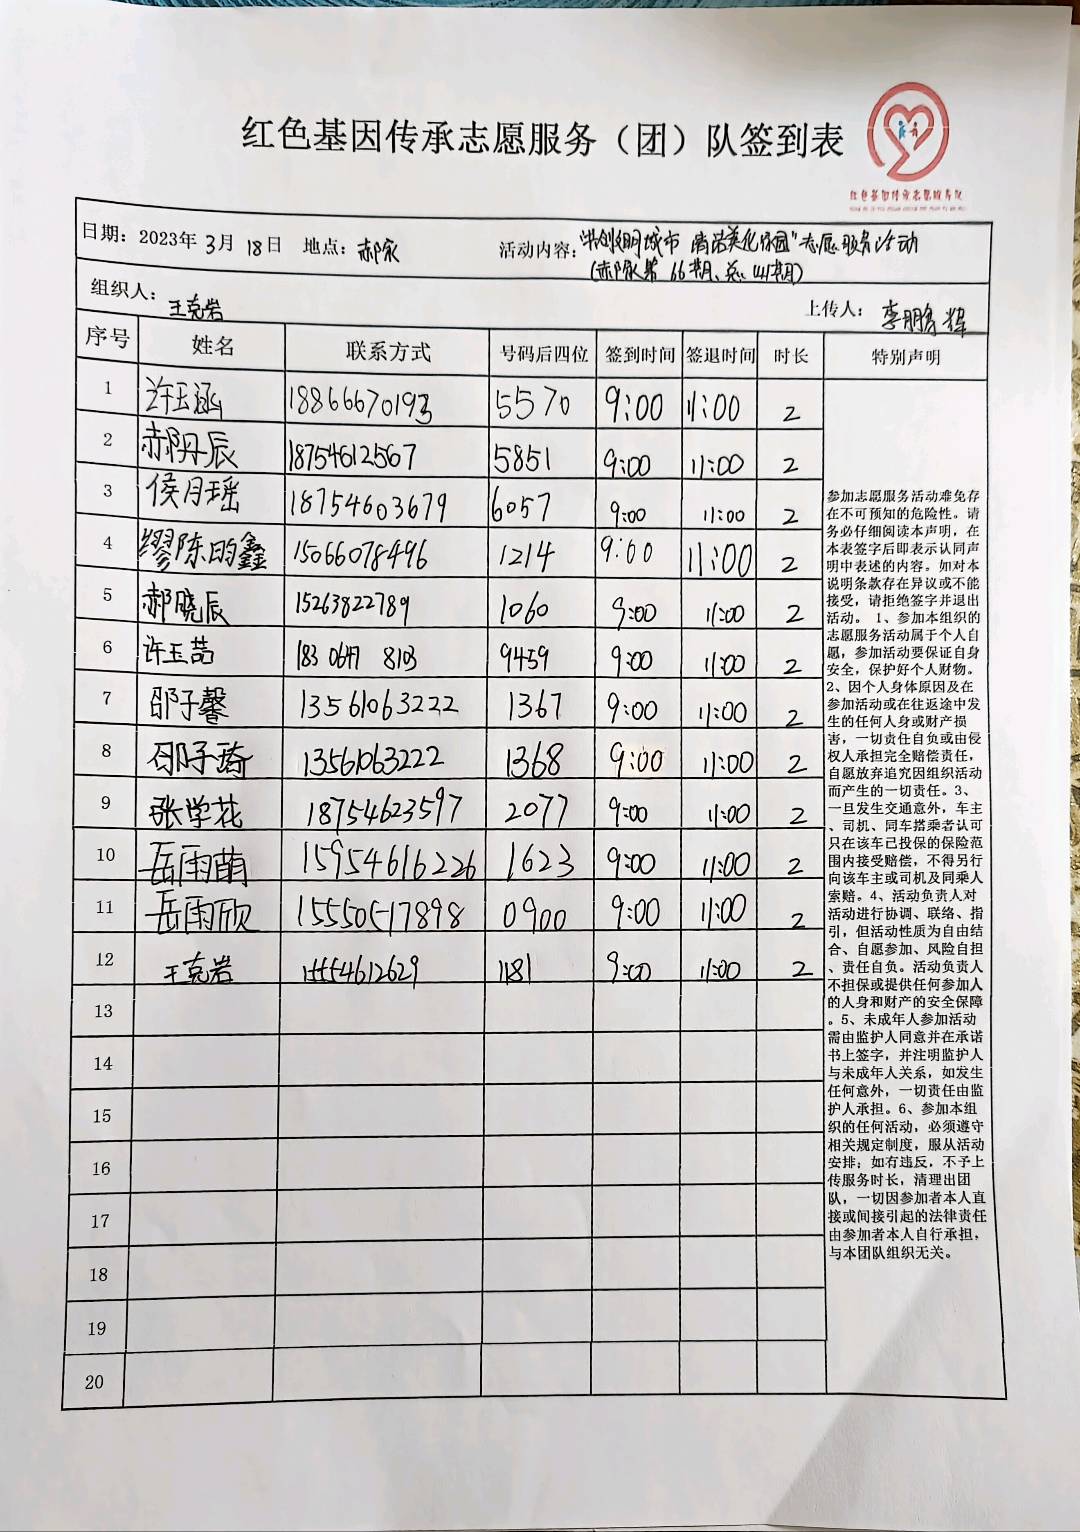 红色基因传承志愿服务（团）队签到表
红色基因传承志愿服务队
日期：2023年 3月 18日 地点：郝家 活动内容："共创文明城市 清洁美化家园"志愿服务活动
(郝家第 66期、总 441期)
组织人：王克岩 上传人：李鹏辉
序号 姓名 联系方式 号码后四位 签到时间 签退时间 时长 特别声明
1 许玉涵 18866670193 5570 9:00 11:00 2
2 郝丹辰 18754612567 5851 9:00 11:00 2
3 侯月瑶 18754603679 6057 9:00 11:00 2
4 缪陈昀鑫 15066078496 1214 9:00 11:00 2
5 郝晓辰 15263822789 1060 9:00 11:00 2
6 许玉喆 183 8103 9459 9:00 11:00 2
7 邵子馨 13561063222 1367 9:00 11:00 2
8 邵子琦 13561063222 1368 9:00 11:00 2
9 张学花 18754623597 2077 9:00 11:00 2
10 岳雨萌 15954616226 1623 9:00 11:00 2
11 岳雨欣 15550517898 0900 9:00 11:00 2
12 王克岩 15554612629 1181 9:00 11:00 2
13
14
15
16
17
18
19
20
参加志愿服务活动难免存
在不可预知的危险性。请
务必仔细阅读本声明，在
本表签字后即表示认同声
明中表述的内容。如对本
说明条款存在异议或不能
接受，请拒绝签字并退出
活动。 1、参加本组织的
志愿服务活动属于个人自
愿，参加活动要保证自身
安全，保护好个人财物。
2、因个人身体原因及在
参加活动或在往返途中发
生的任何人身或财产损
害，一切责任自负或由侵
权人承担完全赔偿责任，
自愿放弃追究因组织活动
而产生的一切责任。3、
一旦发生交通意外，车主
、司机、同车搭乘者认可
只在该车已投保的保险范
围内接受赔偿，不得另行
向该车主或司机及同乘人
索赔。4、活动负责人对
活动进行协调、联络、指
引，但活动性质为自由结
合、自愿参加、风险自担
、责任自负。活动负责人
不担保或提供任何参加人
的人身和财产的安全保障
。5、未成年人参加活动
需由监护人同意并在承诺
书上签字，并注明监护人
与未成年人关系，如发生
任何意外，一切责任由监
护人承担。6、参加本组
织的任何活动，必须遵守
相关规定制度，服从活动
安排；如有违反，不予上
传服务时长，清理出团
队，一切因参加者本人直
接或间接引起的法律责任
由参加者本人自行承担，
与本团队组织无关。